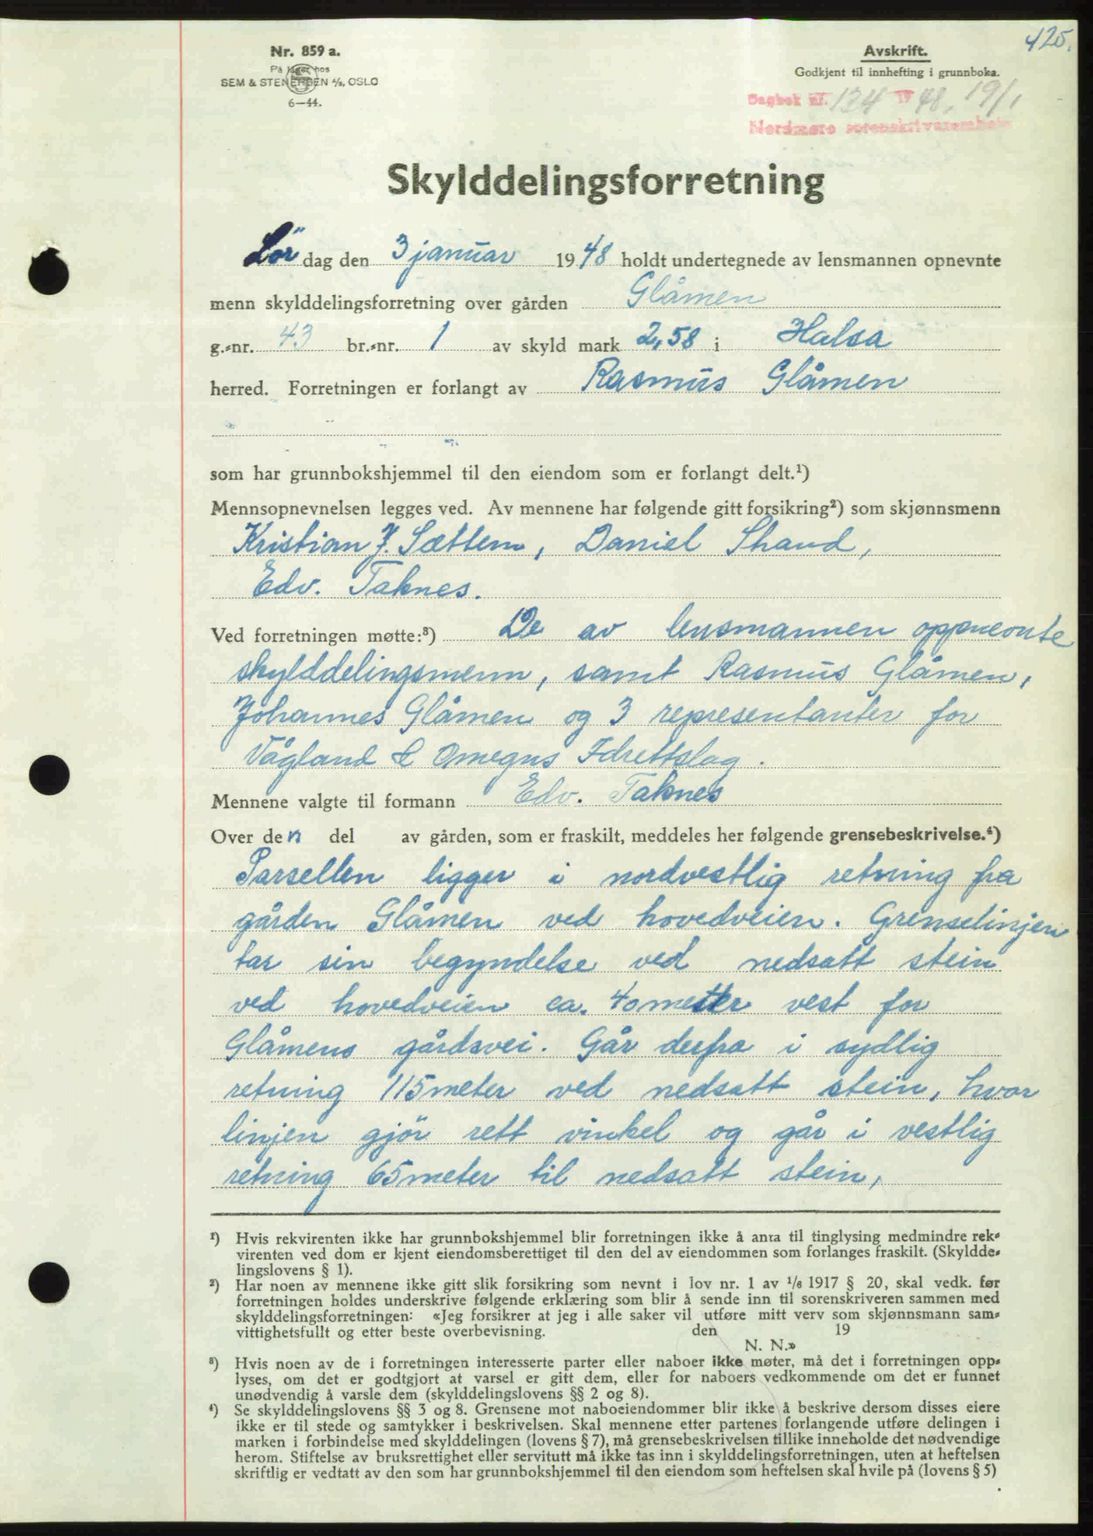 425.
Nr. 859 a.
På lager hos
SEM & STENERSEN A/S, OSLO
6—44.
Avskrift.
Godkjent til innhefting i grunnboka.
Dagbok nr. 134 19 48, 19/1
Nordmøre sorenskriverembete
Skylddelingsforretning
Lør dag den 3 januar 1948 holdt undertegnede av lensmannen opnevnte
menn skylddelingsforretning over gården Glåmen
g.-nr. 43 br.-nr. 1 av skyld mark 2,58 i Halsa
herred. Forretningen er forlangt av Rasmus Glåmen
som har grunnbokshjemmel til den eiendom som er forlangt delt.¹)
Mennsopnevnelsen legges ved. Av mennene har følgende gitt forsikring²) som skjønnsmenn
Kristian J. Sættem, Daniel Strand,
Edv. Taknes.
Ved forretningen møtte:³) De av lensmannen oppnevnte
skylddelingsmenn, samt Rasmus Glåmen,
Johannes Glåmen og 3 representanter for
Vågland & Omegns Idrettslag.
Mennene valgte til formann Edv. Taknes
Over den del av gården, som er fraskilt, meddeles her følgende grensebeskrivelse.⁴)
Parsellen ligger i nordvestlig retning fra
gården Glåmen ved hovedveien. Grenselinjen
tar sin begyndelse ved nedsatt stein
ved hovedveien ca. 40 meter vest for
Glåmens gårdsvei. Går derfra i sydlig
retning 115 meter ved nedsatt stein, hvor
linjen gjør rett vinkel og går i vestlig
retning 65 meter til nedsatt stein,
¹) Hvis rekvirenten ikke har grunnbokshjemmel blir forretningen ikke å anta til tinglysing medmindre rek-
virenten ved dom er kjent eiendomsberettiget til den del av eiendommen som forlanges fraskilt. (Skyldde-
lingslovens § 1).
²) Har noen av mennene ikke gitt slik forsikring som nevnt i lov nr. 1 av 1/6 1917 § 20, skal vedk. før
forretningen holdes underskrive følgende erklæring som blir å sende inn til sorenskriveren sammen med
skylddelingsforretningen: «Jeg forsikrer at jeg i alle saker vil utføre mitt verv som skjønnsmann sam-
vittighetsfullt og etter beste overbevisning. den 19
N. N.»
³) Hvis noen av de i forretningen interesserte parter eller naboer ikke møter, må det i forretningen opp-
lyses, om det er godtgjort at varsel er gitt dem, eller for naboers vedkommende om det er funnet
unødvendig å varsle dem (skylddelingslovens §§ 2 og 8).
⁴) Se skylddelingslovens §§ 3 og 8. Grensene mot naboeiendommer blir ikke å beskrive dersom disses eiere
ikke er til stede og samtykker i beskrivelsen. Skal mennene etter partenes forlangende utføre delingen i
marken i forbindelse med skylddelingen (lovens § 7), må grensebeskrivelsen tillike inneholde det nødvendige
herom. Stiftelse av bruksrettighet eller servitutt må ikke tas inn i skylddelingsforretningen, uten at heftelsen
skriftlig er vedtatt av den som har grunnbokshjemmel til den eiendom som heftelsen skal hvile på (lovens § 5)